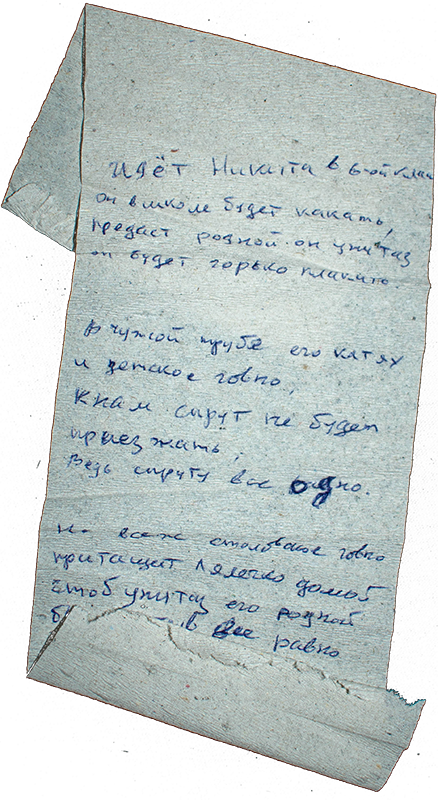 идёт Никита в 6-ой клас
он вшколе будет какать,
предаст родной он унитаз
он будет горько плакать.
В чужой трубе его катях
и детское говно,
кнам спрут не будет
приезжать,
Ведь спруту все одно.
Но все ж столовское говно
притащит домой
Чтоб унитаз его родной
в все равно